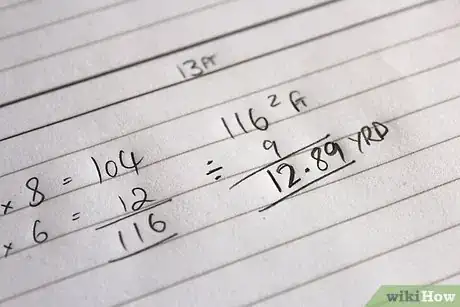 13 ft
× 8 = 104
× 6 = 12
116
116² ft
÷ 9
12.89 YRD
wikiHow